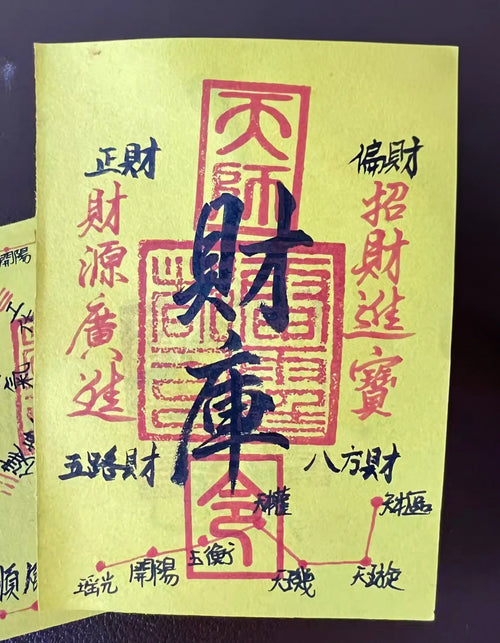 天師
正財
偏財
財庫
財源廣進
招財進寶
五路財
八方財
令
天樞
天璇
天璣
天權
玉衡
開陽
瑤光
開陽
順